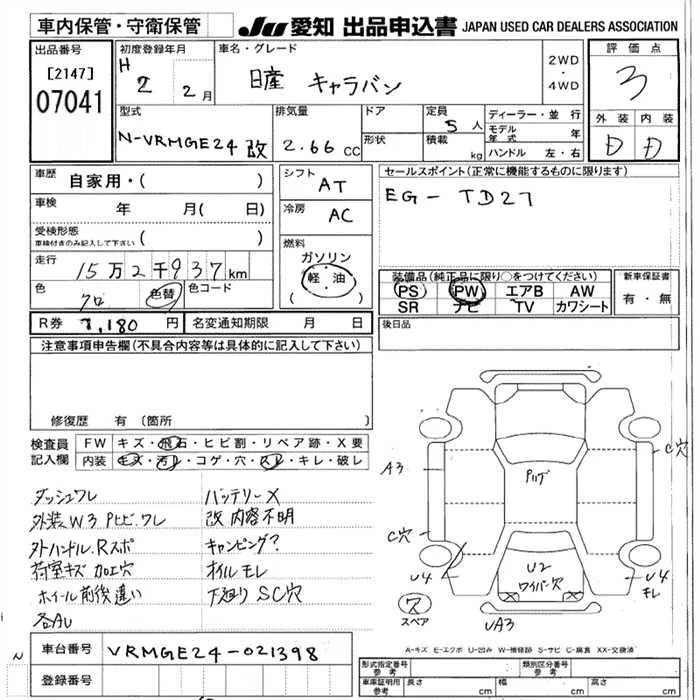 車内保管・守衛保管
JU 愛知 出品申込書 JAPAN USED CAR DEALERS ASSOCIATION
出品番号
[2147]
07041
初度登録年月
H 2 年 2 月
車名・グレード
日産 キャラバン
2WD
・
4WD
評価点
3
型式
N-VRMGE24改
排気量
2.66 CC
ドア
形状
定員 5 人
積載 kg
ディーラー・並行
モデル年式 年
ハンドル 左・右
外装 内装
D D
車歴 自家用・( )
車検 年 月( 日)
受検形態
車検付きのみ記入して下さい ( )
走行 15万2千937km
色 クロ 色替 色コード
シフト AT
冷房 AC
燃料
ガソリン
軽・油
( )
セールスポイント(正常に機能するものに限ります)
EG- TD27
装備品(純正品に限り○をつけてください)
PS PW エアB AW
SR ナビ TV カワシート
新車保証書
有・無
R券 7,180 円 名変通知期限 月 日
後日品
注意事項申告欄(不具合内容等は具体的に記入して下さい)
修復歴 有 (箇所 )
検査員記入欄
FW キズ・飛石・ヒビ割・リペア跡・X要
内装 キズ・汚れ・コゲ・穴・スレ・キレ・破レ
ダッシュワレ バッテリーX
外装W3 Pヒビ.ワレ 改 内容不明
外ハンドル.Rスポ キャンピング?
荷室キズ 加工穴 オイルモレ
ホイール前後違い 下廻り SC穴
各AU
A3
C穴
C穴
U4
U2
ワイパー穴
U4
モレ
ス
スペア
UA3
A-キズ E-エクボ U-凹み W-補修跡 S-サビ C-腐食 XX-交換済
車台番号 VRMGE24-021398
登録番号
形式指定番号 参考
類別区分番号 参考
車庫証明用 参考 長さ cm 幅 cm 高さ cm